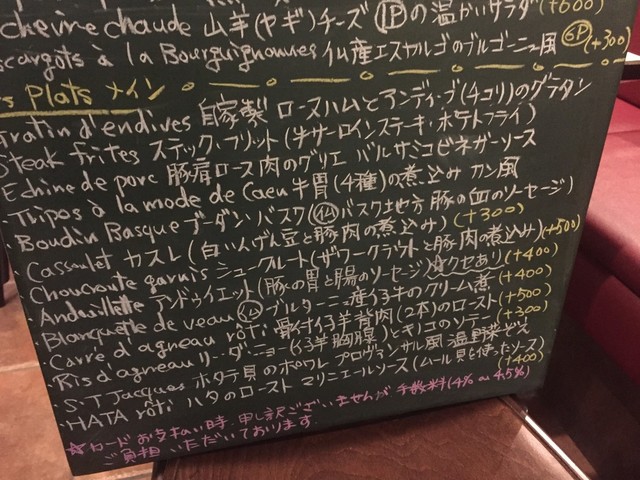 chevre chaude 山羊(ヤギ)チーズ 1Pの温かいサラダ (+600)
scargots à la Bourguignonnes 仏産エスカルゴのブルゴーニュ風 6P (+300)
s Plats メイン
ratin d'endives 自家製 ロースハムとアンディーブ(チコリ)のグラタン
Steak frites ステック・フリット(牛サーロインステーキ・ポテトフライ)
Echine de porc 豚肩ロース肉のグリエ バルサミコビネガーソース
Tripes à la mode de Caen 牛胃(4種)の煮込み カン風
Boudin Basque ブーダンバスク 仏バスク地方 豚の血のソーセージ)
Cassoulet カスレ(白いんげん豆と豚肉の煮込み) (+300)
Choucroute garnis シュークルート(ザワークラウトと豚肉の煮込み) (+500)
Andouillette アンドゥイエット(豚の胃と腸のソーセージ) ☆クセあり (+400)
Blanquette de veau 仏ブルターニュ産仔牛のクリーム煮 (+400)
Carre d'agneau rôti 骨付仔羊背肉(2本)のロースト (+500)
Ris d'agneau リ・ダニョー(仔羊胸腺)とキノコのソテー (+300)
S.T Jacques ホタテ貝のポワレ プロヴァンサル風 温野菜ぞえ
HATA rôti ハタのロースト マリニエールソース(ムール貝を使ったソース) (+400)
☆カードお支払い時、申し訳ございませんが 手数料(4%〜4.5%)
ご負担いただいております